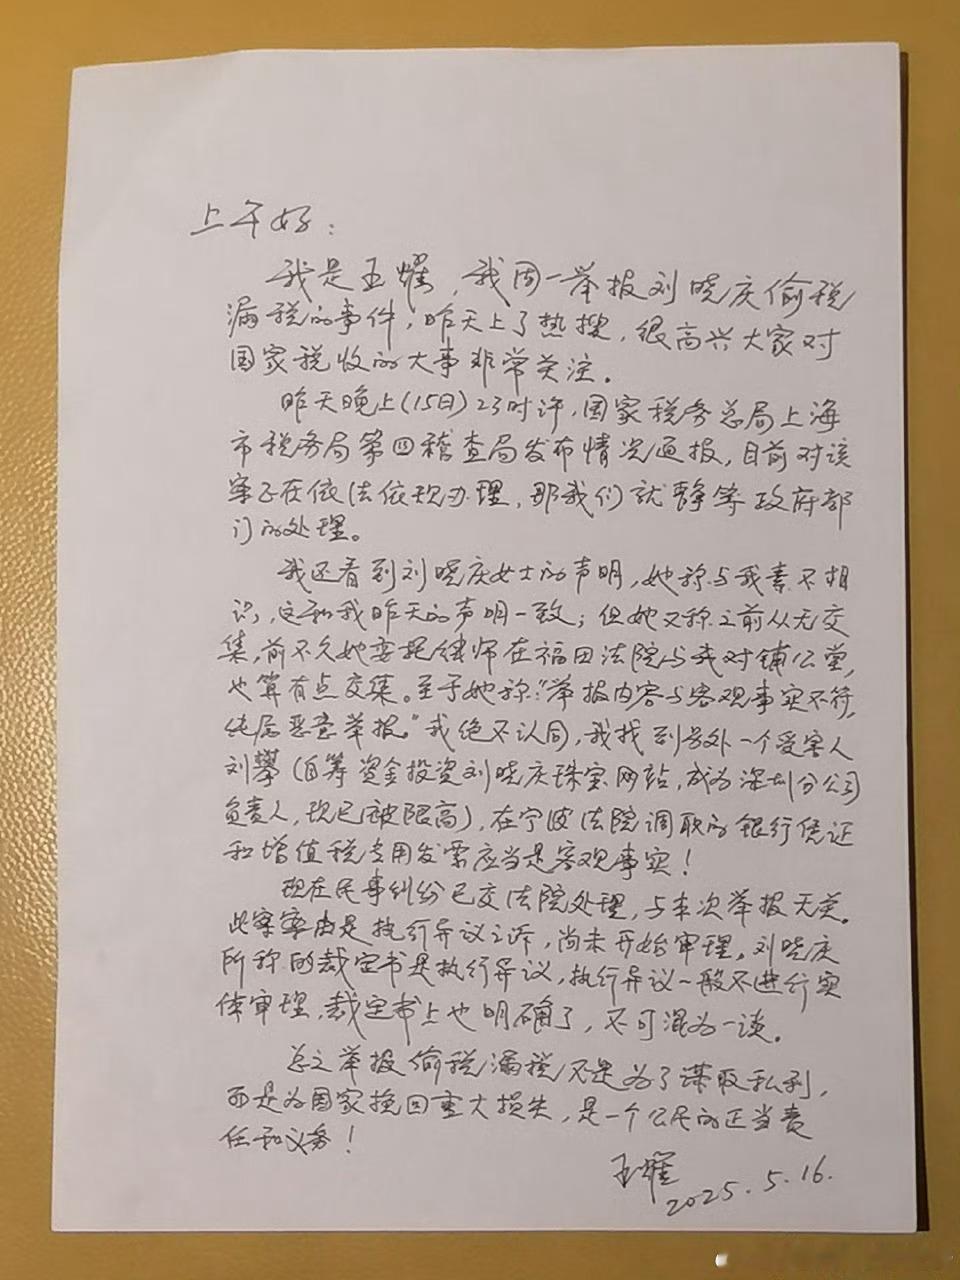 上午好：
我是王耀，我周一举报刘晓庆偷税
漏税的事件，昨天上了热搜，很高兴大家对
国家税收的大事非常关注。
昨天晚上(15日)23时许，国家税务总局上海
市税务局第四稽查局发布情况通报，目前对该
案正在依法依规办理，那我们就静等政府部
门的处理。
我还看到刘晓庆女士的声明，她称与我素不相
识，这和我昨天的声明一致；但她又称之前从无交
集，前不久她委托律师在福田法院与我对铺公堂，
也算有点交集。至于她称："举报内容与客观事实不符，
纯属恶意举报。"我绝不认同，我找到另外一个受害人
刘攀（自筹资金投资刘晓庆珠宝网站，成为深圳分公司
负责人，现已被限高），在宁波法院调取的银行凭证
和增值税专用发票应当是客观事实！
现在民事纠纷已交法院处理，与本次举报无关。
此案案由是执行异议之诉，尚未开始审理。刘晓庆
所称的裁定书是执行异议，执行异议一般不进行实
体审理，裁定书上也明确了，不可混为一谈。
总之举报偷税漏税不是为了谋取私利，
而是为国家挽回重大损失，是一个公民的正当责
任和义务！
王耀
2025.5.16.